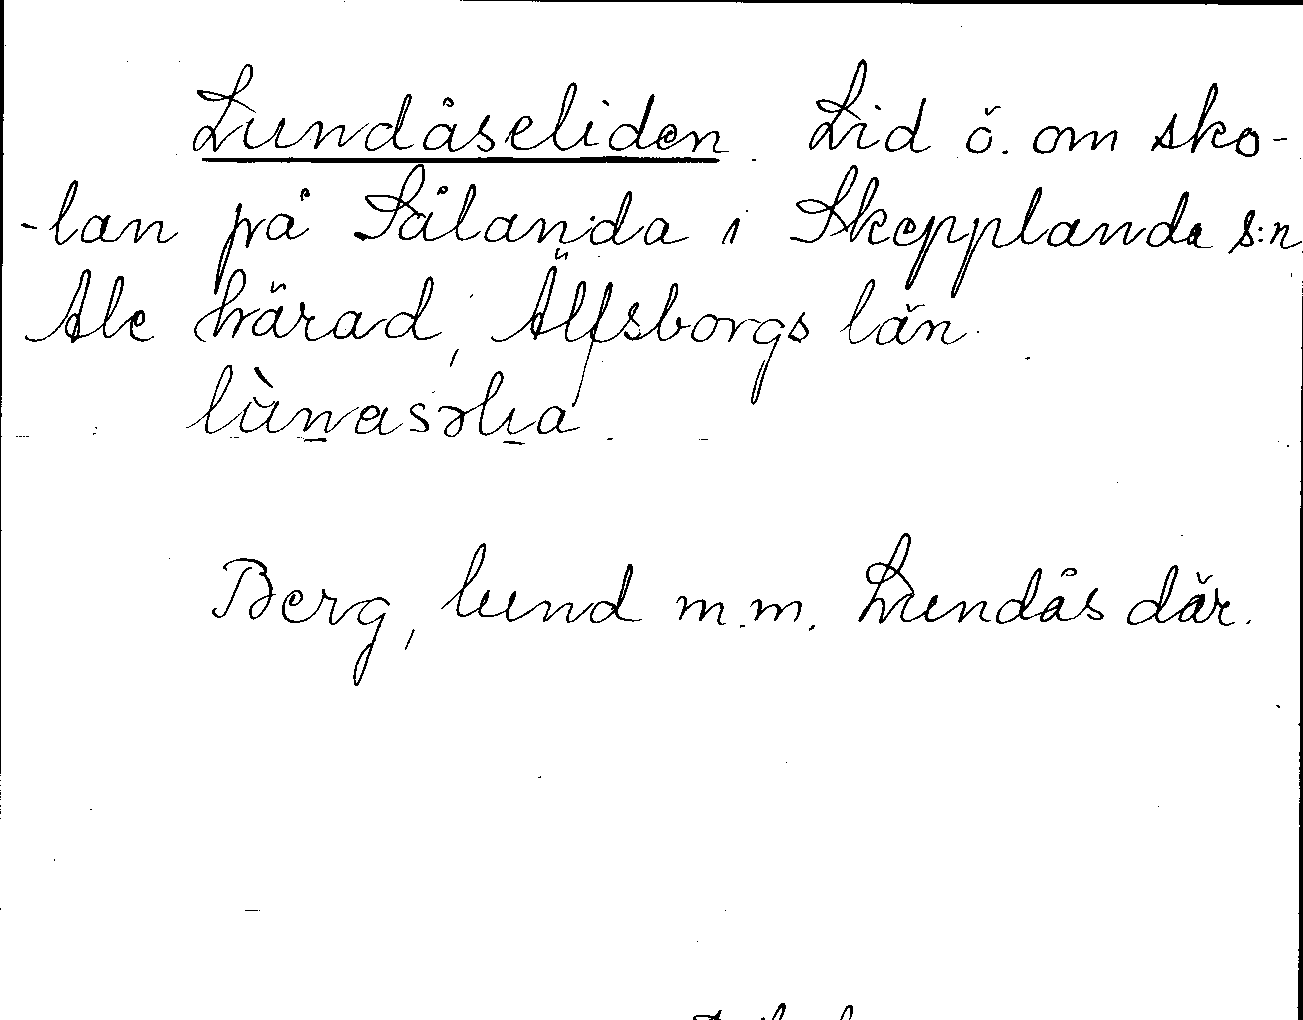 Lundåseliden. Lid ö. om sko-
-lan på Sålanda i Skepplanda s:n
Ale härad, Älfsborgs län.
lùnasəlia.
Berg, lund m.m. Lundås där.